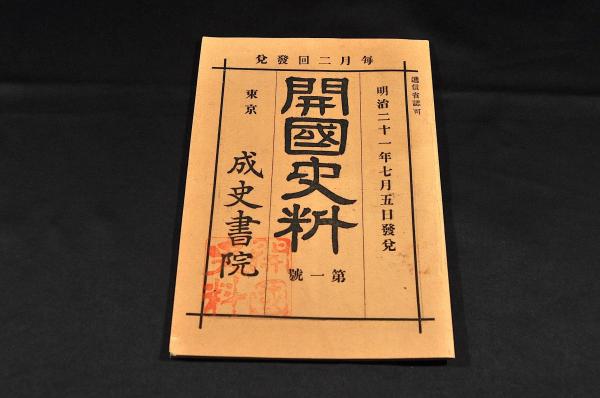 每月二回發兌
遞信省認可
明治二十一年七月五日發兌
開國史料
第一號
東京
成史書院
開國史料